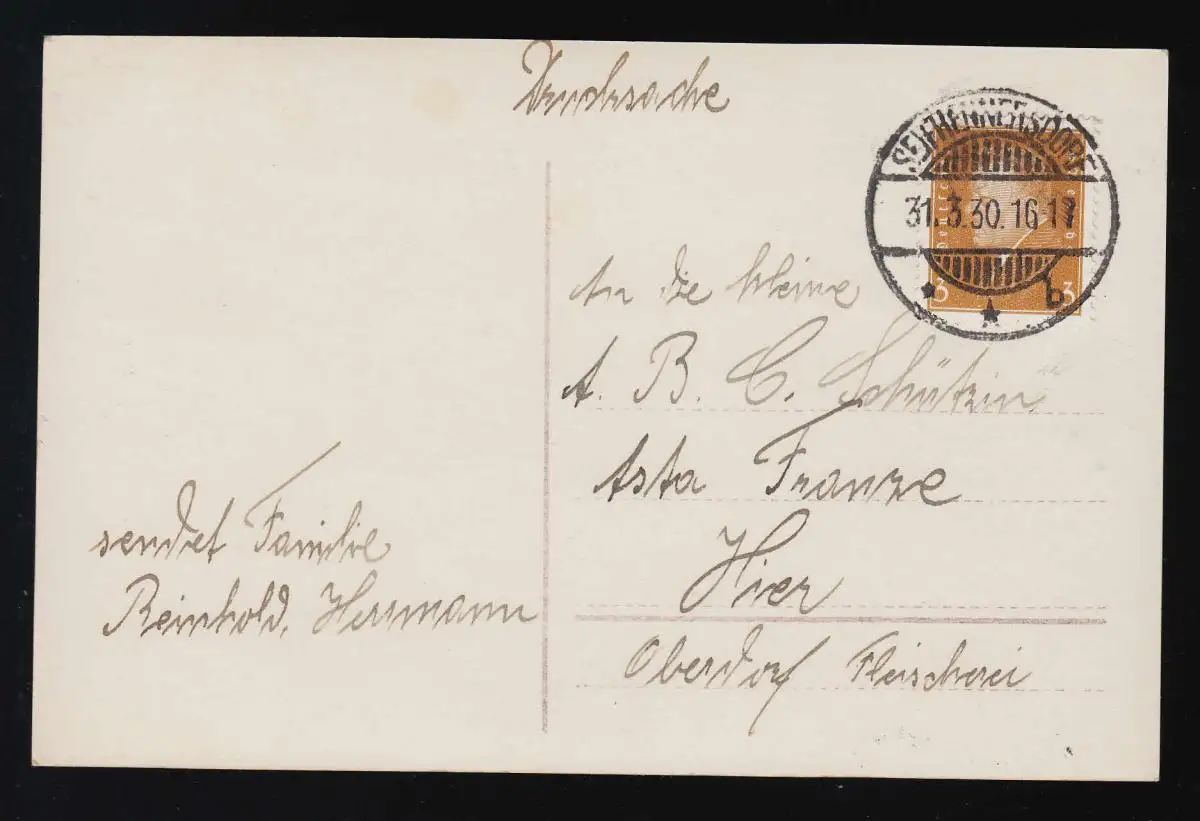 Drucksache
SEIFHENNERSDORF
31.3.30.16-17
b
3 3
An die kleine
A. B. C. Schützin
Asta Franze
Hier
Oberdorf Fleischerei
sendet Familie
Reinhold, Herrmann